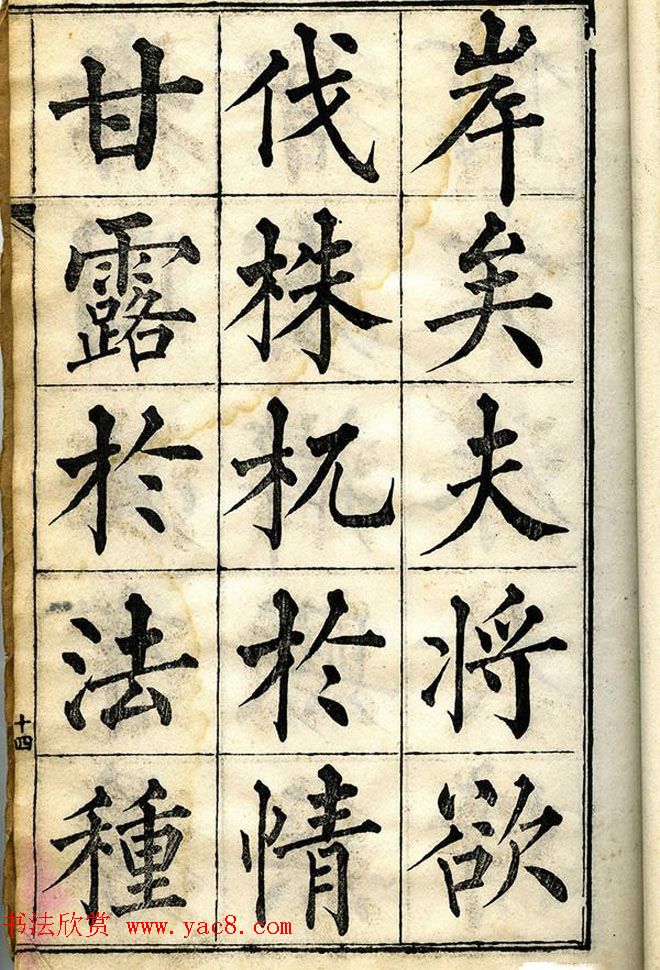 岸矣夫将欲
伐株杌於情
甘露於法種
十四
书法欣赏 www.yac8.com